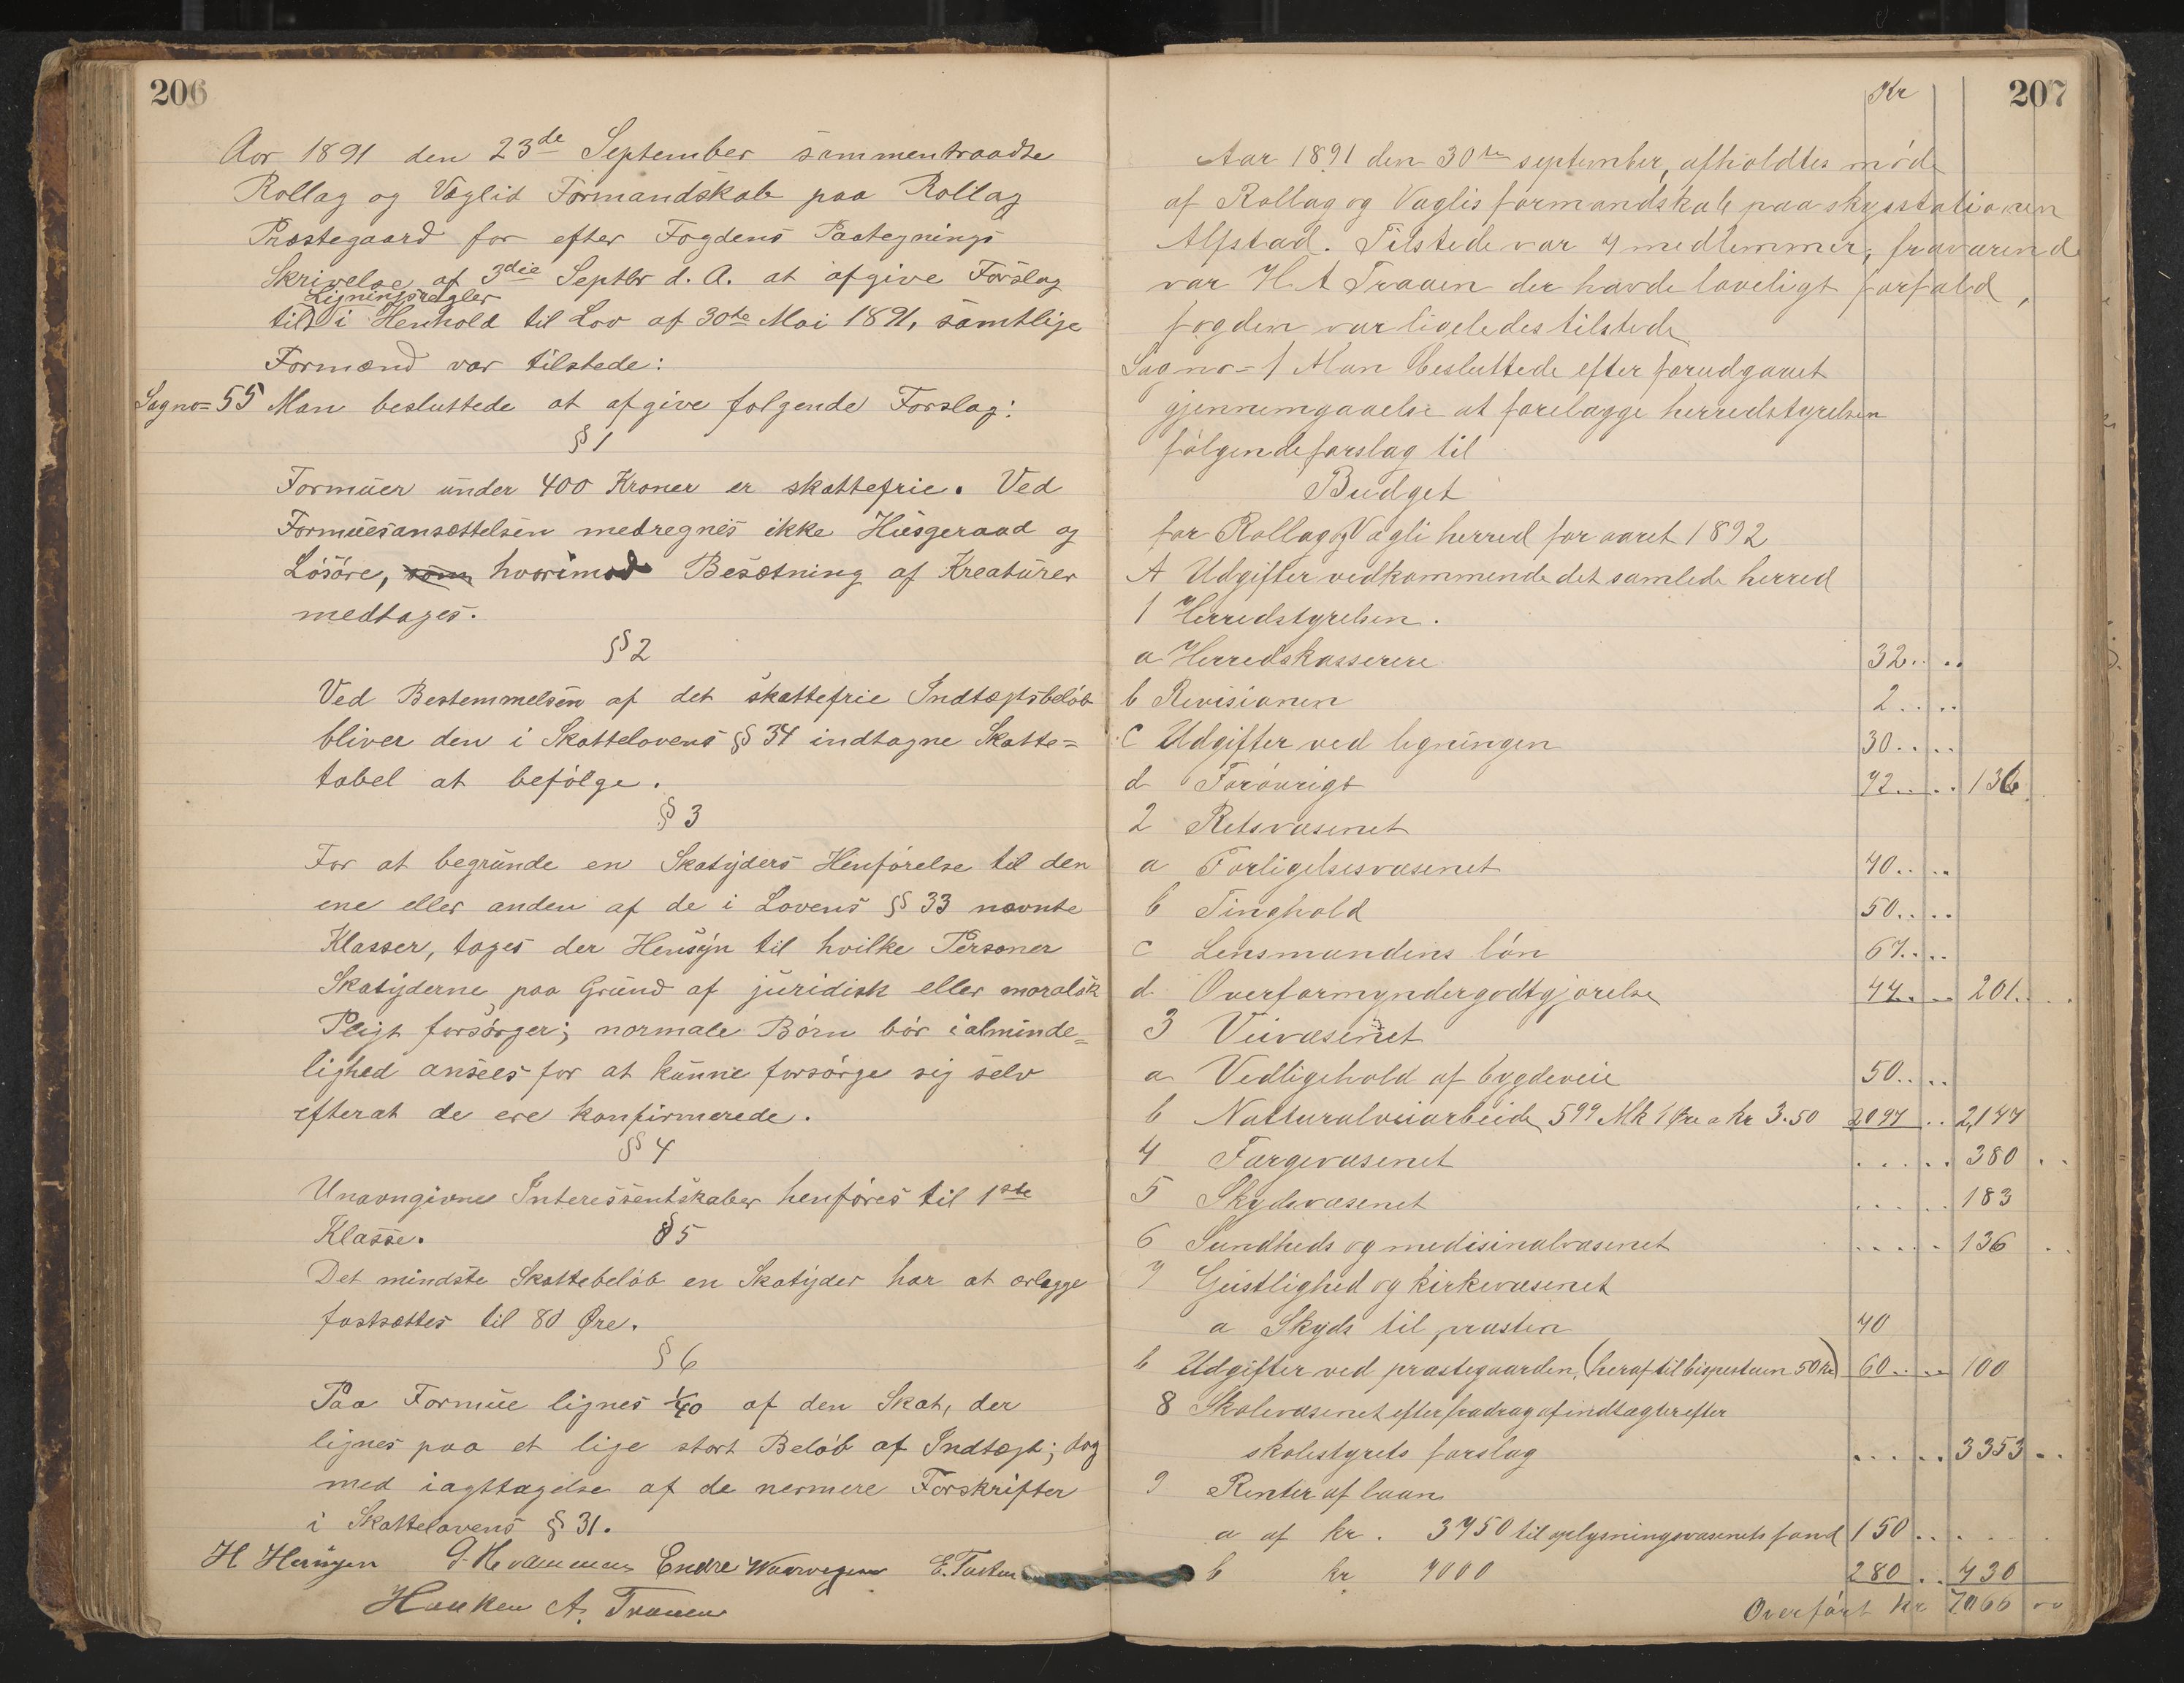 206
Aar 1891 den 23de September sammentraadte
Rollag og Væglid Formandskab paa Rollag
Præstegaard for efter Fogdens Paategnings
Skrivelse af 3die Septbr d. A. at afgive Forslag
Ligningsregler
til i Henhold til Lov af 30te Mai 1891, samtlige
Formænd var tilstede:
Sagno= 55 Man besluttede at afgive følgende Forslag:
§ 1
Formuer under 400 Kroner er skattefrie. Ved
Formuesansættelsen medregnes ikke Husgeraad og
Løsøre, som hvorimod Besætning af Kreaturer
medtages.
§ 2
Ved Bestemmelsen af det skattefrie Indtægtsbeløb
bliver den i Skattelovens § 34 indtagne Skatte=
tabel at befølge.
§ 3
For at begrunde en Skatyders Henførelse til den
ene eller anden af de i Lovens § 33 nævnte
Klasser, tages der Hensyn til hvilke Personer
Skatyderne paa Grund af juridisk eller moralsk
Pligt forsørger; normale Børn bør i alminde=
lighed ansees for at kunne forsørge sig selv
efterat de ere konfirmerede.
§ 4
Unavngivne Interessentskaber henføres til 1ste
Klasse.
§ 5
Det mindste Skattebeløb en Skatyder har at erlægge
fastsættes til 80 Øre.
§ 6
Paa Formue lignes 1/40 af den Skat, der
lignes paa et lige stort Beløb af Indtægt; dog
med iagttagelse af de nærmere Forskrifter
i Skattelovens § 31.
Endre
Haaken A. Traaen
207
Kr
Aar 1891 den 30te september, afholdtes møde
af Rollag og Væglis formandskab paa skysstationen
Alfstad. Tilstede var 4 medlemmer, fraværende
var H. A Traaen der havde loveligt forfald,
fogden var ligeledes tilstede
Sag no= 1 Man besluttede efter forudgaaet
gjennemgaaelse at forelægge herredstyrelsen
følgende forslag til
Budget
for Rollag og Vægli herred for aaret 1892
A Udgifter vedkommende det samlede herred
1 Herredstyrelsen.
a Herredskasserere 32.. ..
b Revisionen 2.. ..
c Udgifter ved ligningen 30.. ..
d Forøvrigt 72.. .. 136
2 Retsvæsenet
a Forligelsesvæsenet 40.. ..
b Tinghold 50.. ..
c Lensmandens løn 67.. ..
d Overformyndergodtgjørelse 44.. .. 201. ..
3 Veivæsenet
a Vedligehold af bygdeveie 50.. ..
b Natturalveiarbeide 599 Mk 1 Øre a Kr 3.50 2097 .. 2,147
4 Færgevæsenet . . . . . 380 . .
5 Skydsvæsenet . . . . . 183
6 Sundheds og medisinalvæsenet . . . . . 136 . .
7 Geistlighed og kirkevæsenet
a Skyds til præsten 40
b Udgifter ved præstegaarden, (heraf til bispestuen 50 kr) 60.. .. 100
8 Skolevæsenet efter fradrag af indtægter efter
skolestyrets forslag . . . . . 3353 . .
9 Renter af laan
a af kr. 3750 til oplysningsvæsenets fond 150 . . .
b kr 7000 280 . . 430
Overført kr 7066